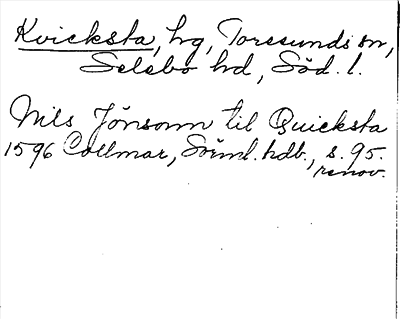 Kvicksta, hg, Torssunds sn,
Selebo hd, Söd. l.
Nils Jönsonn til Quicksta
1596 Collmar, Sörml. hdb., s. 95.
renov.